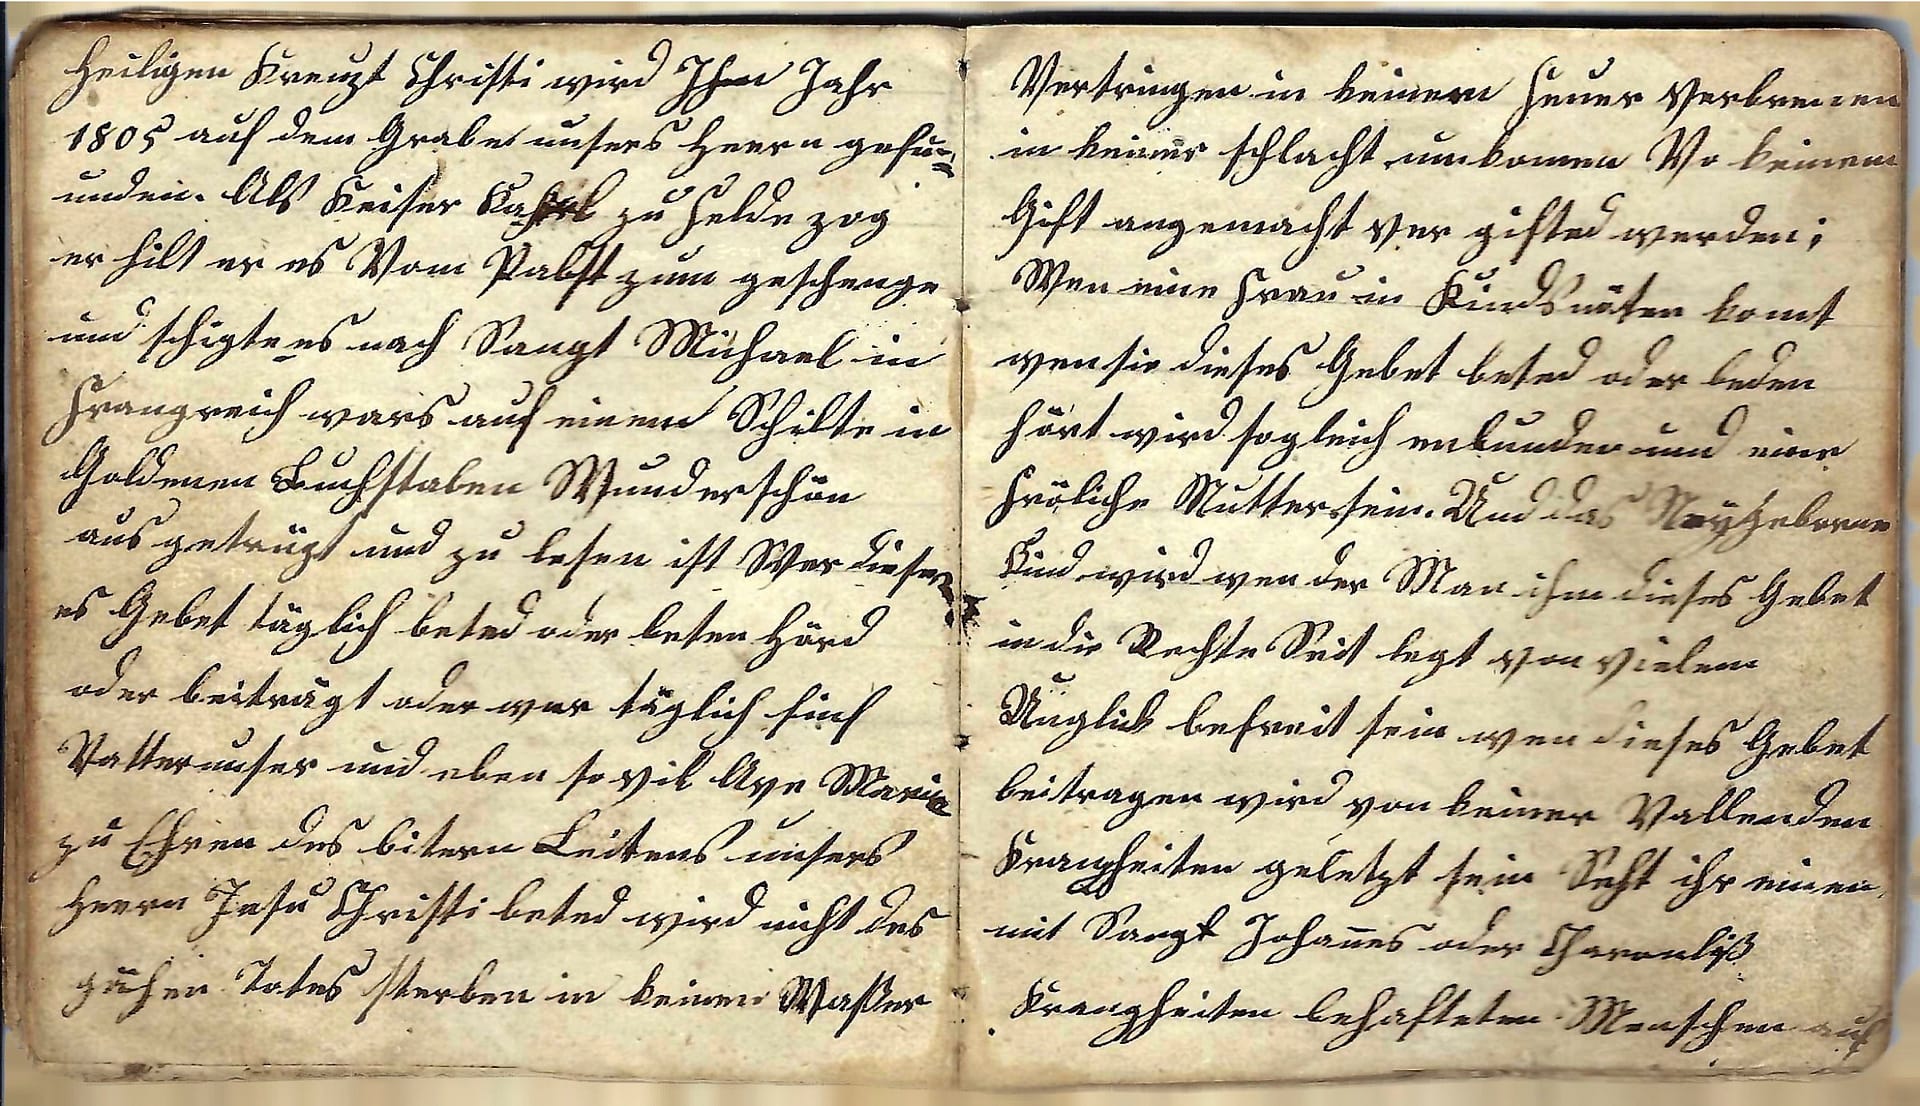 Heiligen Kreuzt Christi wird Ihm Jahr
1805 auf dem Grabe unsers Heern gefu=
unden. Als Keiser Karl zu Felde zog
er hilt er es Vom Pabst zum geschenge
und schigte es nach Sangt Michael in
Frangreich wars auf einem Schilte in
Goldenen Buchstaben Wunderschön
aus getrügt und zu lesen ist Wer dieses=
es Gebet täglich beted oder beten Hörd
oder beiträgt oder wer täglich finf
Vatterunser und eben so vil Ave Maria
zu Ehren des bitern Leitens unsers
Heern Jesu Christi beted wird nicht des
gähen Totes sterben in keinen Waßer
Vertringen in keinem Feuer verbrenen
in keiner schlacht umkomen Vo keinem
Gift angemacht ver gifted werden;
Wen eine Frau in Kindsnöten komt
wen sie dieses Gebet beted oder beden
hört wird sogleich enbunden und eine
Fröliche Mutter sein. Und das Neygeborne
Kind wird wen der Man ihm dieses Gebet
in die Rechte Seit legt von vielem
Unglick befreit sein wen dieses Gebet
beitragen wird von keiner Vallenden
Krangheiten geletzt sein Seht ihr einen
mit Sangt Johanes oder
Krangheiten behafteten Menschen auf